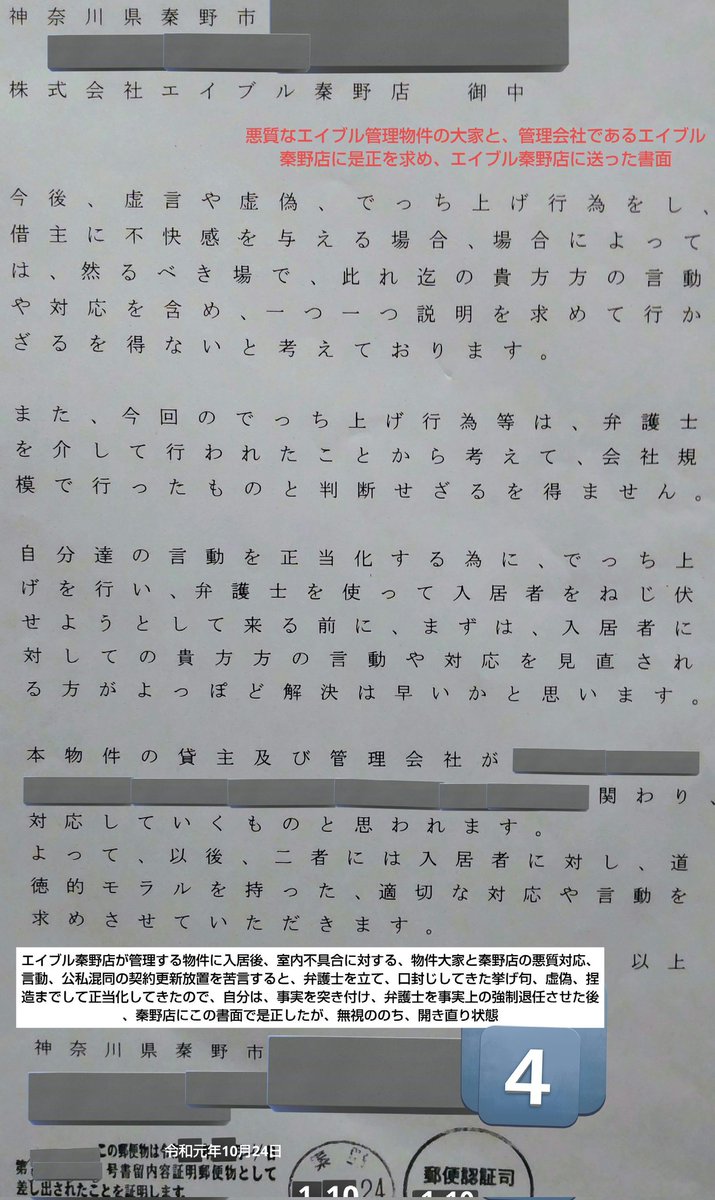 神奈川県秦野市
株式会社エイブル秦野店　御中
悪質なエイブル管理物件の大家と、管理会社であるエイブル
秦野店に是正を求め、エイブル秦野店に送った書面
今後、虚言や虚偽、でっち上げ行為をし、
借主に不快感を与える場合、場合によって
は、然るべき場で、此れ迄の貴方方の言動
や対応を含め、一つ一つ説明を求めて行か
ざるを得ないと考えております。
また、今回のでっち上げ行為等は、弁護士
を介して行われたことから考えて、会社規
模で行ったものと判断せざるを得ません。
自分達の言動を正当化する為に、でっち上
げを行い、弁護士を使って入居者をねじ伏
せようとして来る前に、まずは、入居者に
対しての貴方方の言動や対応を見直され
る方がよっぽど解決は早いかと思います。
本物件の貸主及び管理会社が
関わり、
対応していくものと思われます。
よって、以後、二者には入居者に対し、道
徳的モラルを持った、適切な対応や言動を
求めさせていただきます。
以上
エイブル秦野店が管理する物件に入居後、室内不具合に対する、物件大家と秦野店の悪質対応、
言動、公私混同の契約更新放置を苦言すると、弁護士を立て、口封じしてきた挙げ句、虚偽、捏
造までして正当化してきたので、自分は、事実を突き付け、弁護士を事実上の強制退任させた後
、秦野店にこの書面で是正したが、無視ののち、開き直り状態
神奈川県秦野市
4
この郵便物は令和元年10月24日
第 号書留内容証明郵便物として
差し出されたことを証明します。
郵便認証司